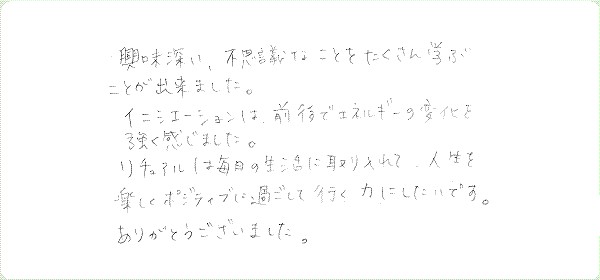 興味深い、不思議なことをたくさん学ぶ
ことが出来ました。
イニシエーションは、前後でエネルギーの変化を
強く感じました。
リチュアルは毎日の生活に取り入れて、人生を
楽しくポジティブに過ごして行く力にしたいです。
ありがとうございました。